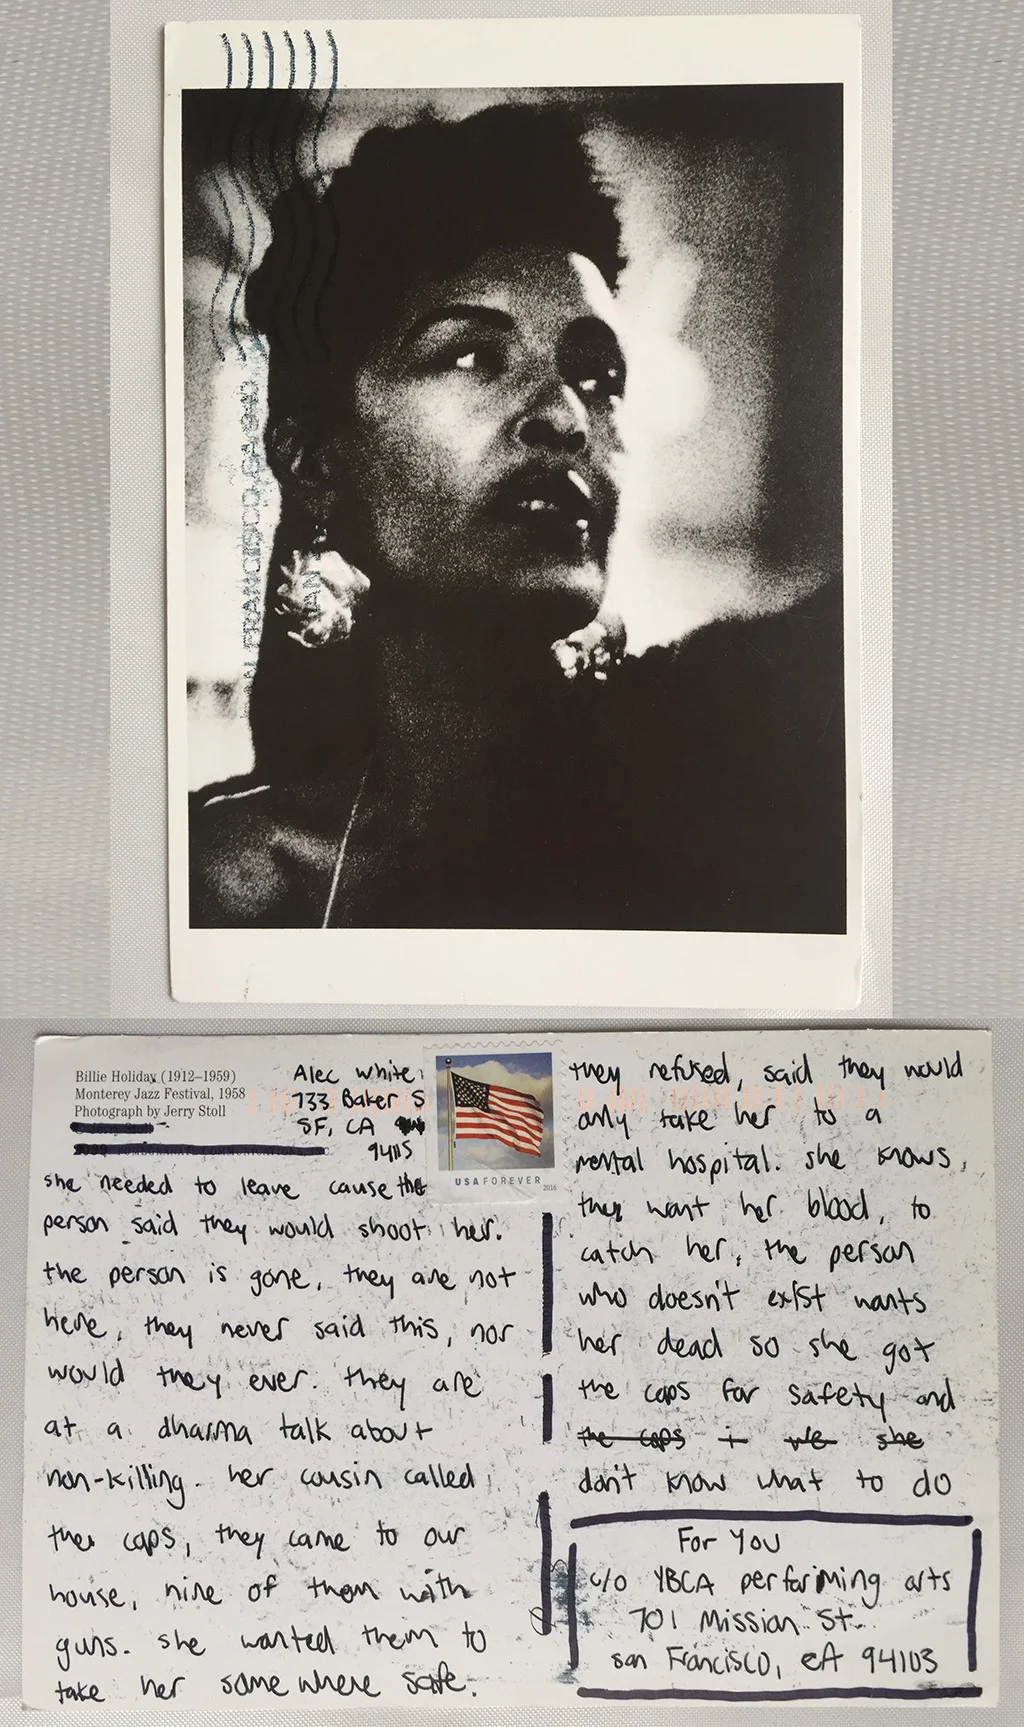 SAN FRANCISCO CA 940
Billie Holiday (1912–1959)
Monterey Jazz Festival, 1958
Photograph by Jerry Stoll
Alec White
733 Baker S
SF, CA
94115
USA FOREVER
2016
she needed to leave cause the
person said they would shoot her.
the person is gone, they are not
here, they never said this, nor
would they ever. they are
at a dharma talk about
non-killing. her cousin called
the cops, they came to our
house, nine of them with
guns. she wanted them to
take her somewhere safe.
they refused, said they would
only take her to a
mental hospital. she knows,
they want her blood, to
catch her, the person
who doesn't exist wants
her dead so she got
the cops for safety and
the cops i we she
don't know what to do
For You
c/o YBCA performing arts
701 Mission St.
San Francisco, CA 94103